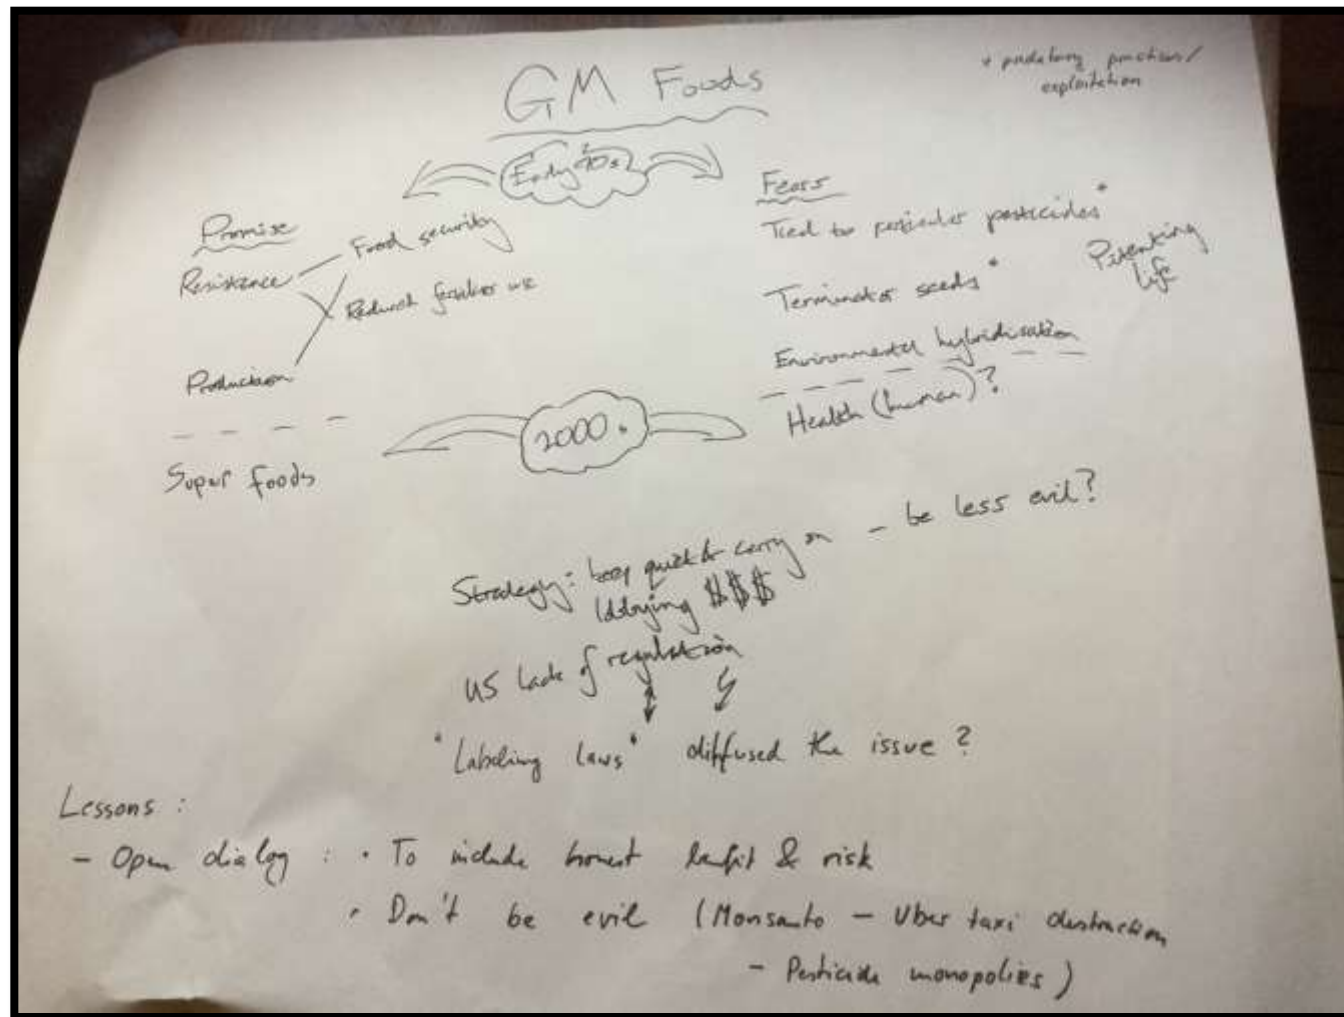 GM Foods
* predatory practices/
exploitation
Early 90s
Promise
Resistance
Food security
Reduced use
Production
Super foods
Fears
Tied to particular pesticides*
Terminator seeds*
Patenting
life
Environmental hybridisation
Health (human)?
2000s
Strategy: keep quiet & carry on – be less evil?
lobbying $$$
US lack of regulation
"Labeling laws" diffused the issue?
Lessons:
- Open dialog: • To include honest benefit & risk
• Don't be evil (Monsanto – Uber taxi destruction
- Pesticide monopolies)